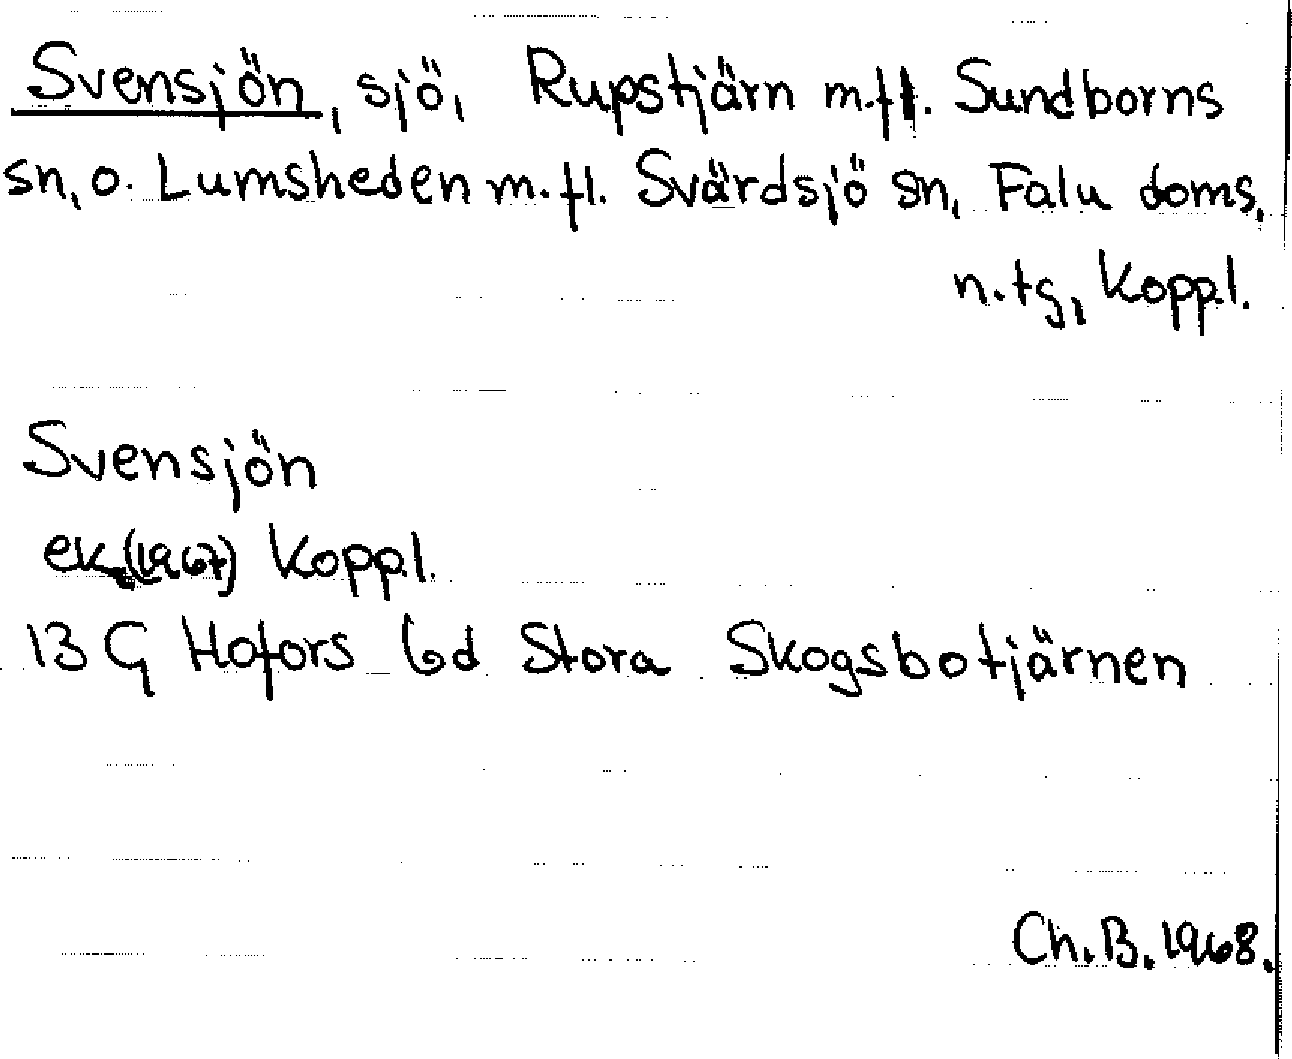 Svensjön, sjö, Rupstjärn m.fl. Sundborns
sn, o. Lumsheden m.fl. Svärdsjö sn, Falu doms,
n.tg, Koppl.
Svensjön
ek.(1967) Koppl.
13 G Hofors 6d Stora Skogsbotjärnen
Ch.B.1968.